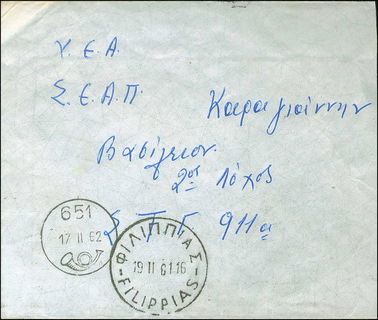 Υ. Ε. Α.
Σ. Ε. Α. Π. Καραγιάννην
Βασίλειον.
2ος λόχος
Σ Τ Γ 911α
651
17 II 62
ΦΙΛΙΠΠΙΑΣ
19 II 61.16
FILIPPIAS